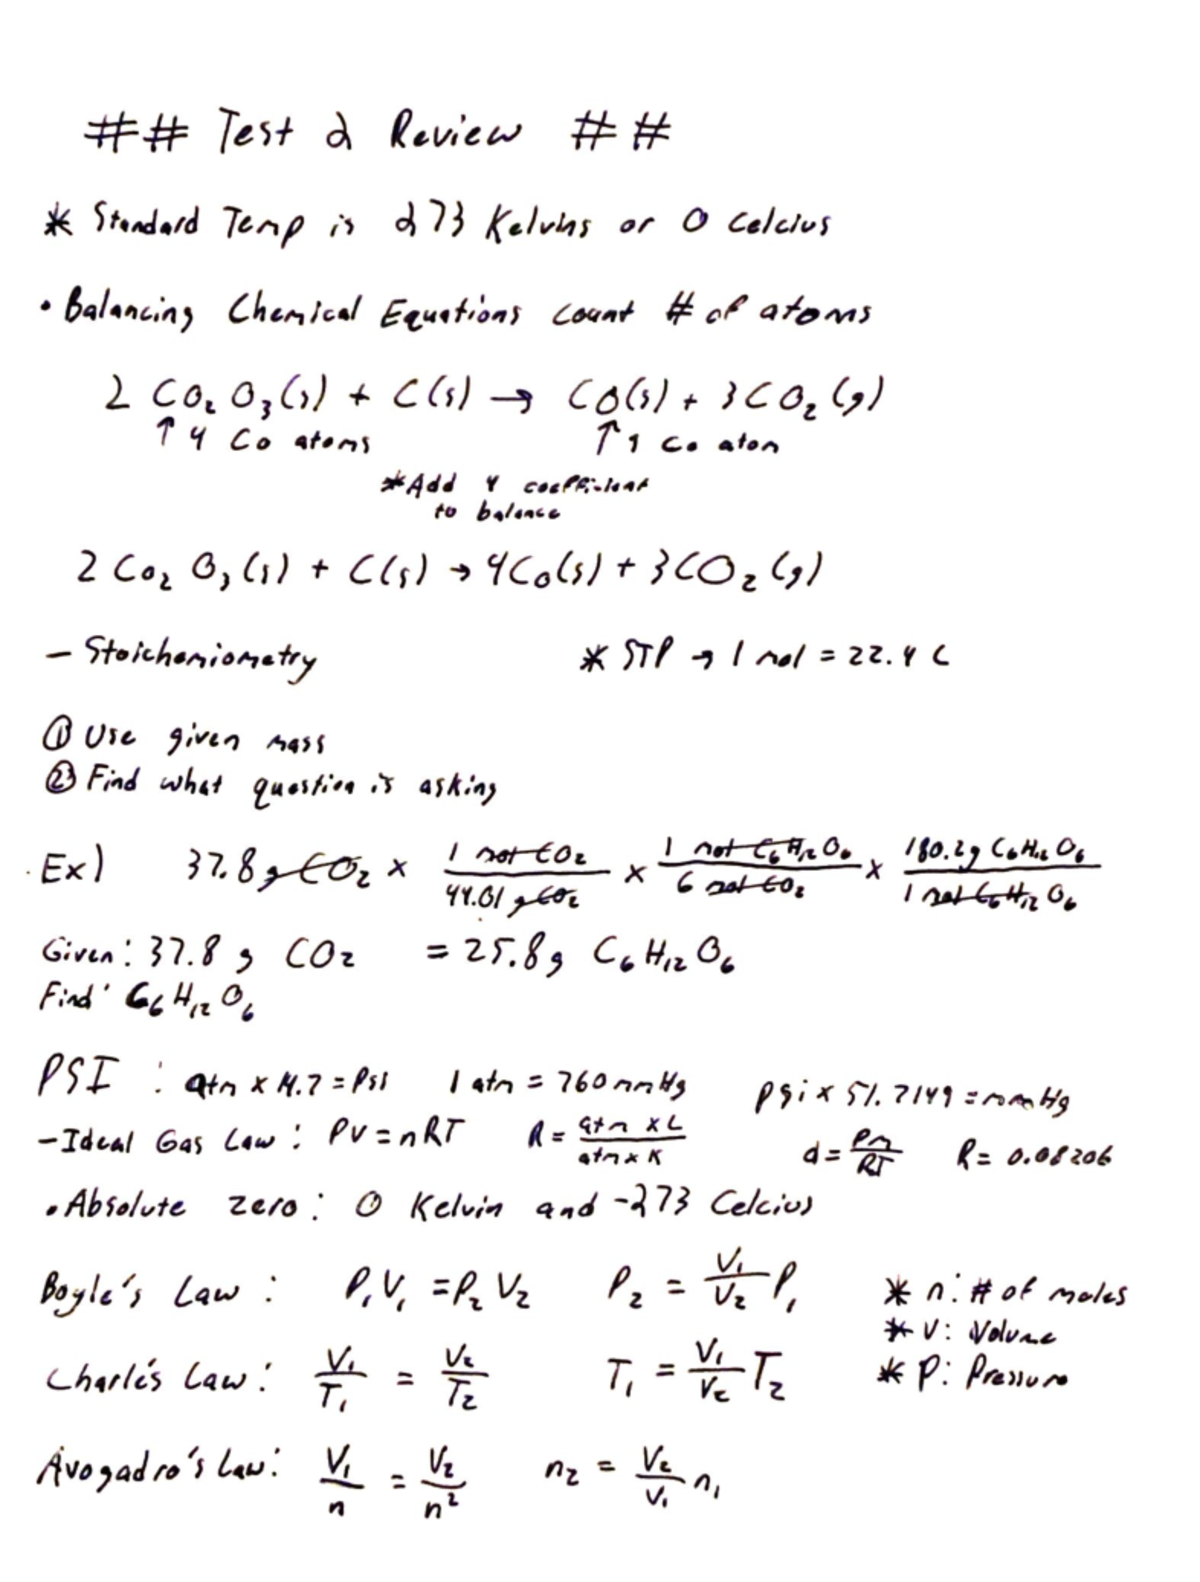 ## Test 2 Review ##
* Standard Temp is 273 Kelvins or 0 Celcius
• Balancing Chemical Equations count # of atoms
2 CO₂O₃(s) + C(s) → CO(s) + 3CO₂(g)
↑ 4 Co atoms ↑ 1 Co atom
*Add 4 coefficient
to balance
2 Co₂O₃(s) + C(s) → 4Co(s) + 3CO₂(g)
- Stoichomiometry * STP → 1 mol = 22.4 L
① Use given mass
② Find what question is asking
Ex) 37.8 g CO₂ × 1 mol CO₂ / 44.01 g CO₂ × 1 mol C₆H₁₂O₆ / 6 mol CO₂ × 180.2g C₆H₁₂O₆ / 1 mol C₆H₁₂O₆
Given: 37.8 g CO₂ = 25.8g C₆H₁₂O₆
Find: C₆H₁₂O₆
PSI : atm × 14.7 = Psi 1 atm = 760 mmHg psi × 51.7149 = mmHg
-Ideal Gas Law: PV = nRT R = atm × L / atm × K d = Pm / RT R = 0.08206
• Absolute zero: 0 Kelvin and -273 Celcius
Boyle's Law: P₁V₁ = P₂V₂ P₂ = V₁/V₂ P₁ * n: # of moles
* V: Volume
Charle's Law: V₁/T₁ = V₂/T₂ T₁ = V₁/V₂ T₂ * P: Pressure
Avogadro's Law: V₁/n = V₂/n² n₂ = V₂/V₁ n₁